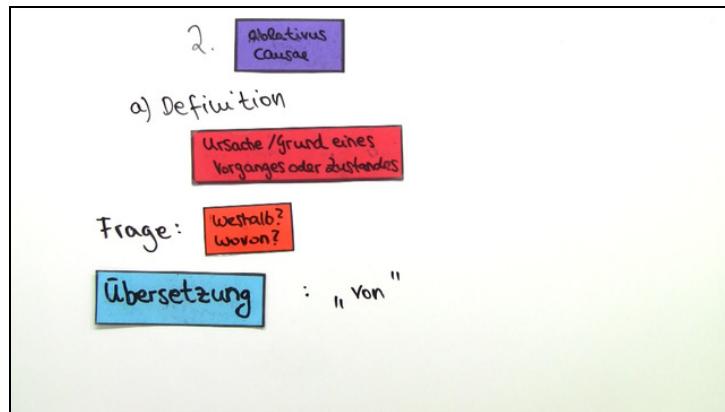 2. Ablativus
Causae
a) Definition
Ursache/Grund eines
Vorganges oder Zustandes
Frage: Weshalb?
Wovon?
Übersetzung : „von"